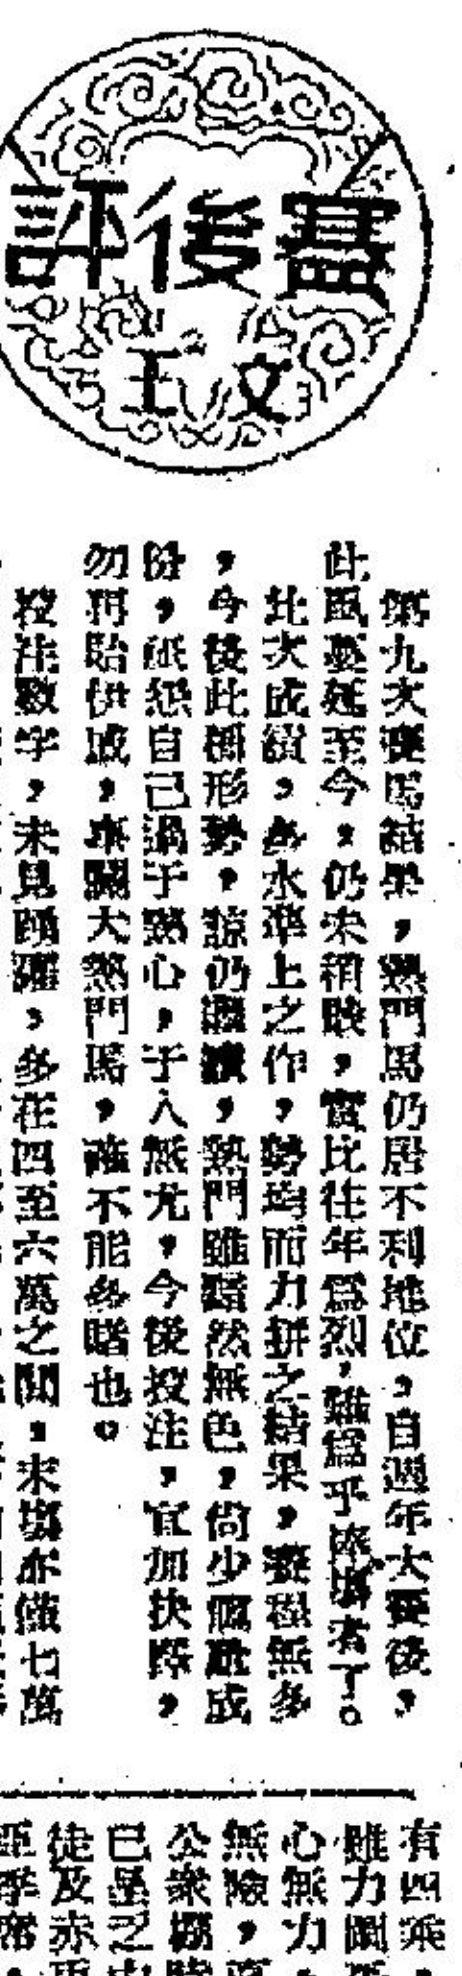 賽後評
文王
第九次賽馬結果，熱門馬仍居不利地位，自過年大賽後，
此風蔓延至今，仍未稍戢，實比往年為烈，難為乎捧場者了。
此次成績，多水準上之作，勢均而力拼之結果，賽程無多
，今後此種形勢，諒仍繼續，熱門雖黯然無色，尚少個
，祇怨自己過于熱心，于人無尤，今後投注，宜加抉擇，
勿再貽伊戚，大熱門馬，不能多賭也。
投注數字，未見踴躍，多在四至六萬之間，末場亦僅七萬
有四乘
雖力圖
心無力
無險，
公衆
已
徒及赤